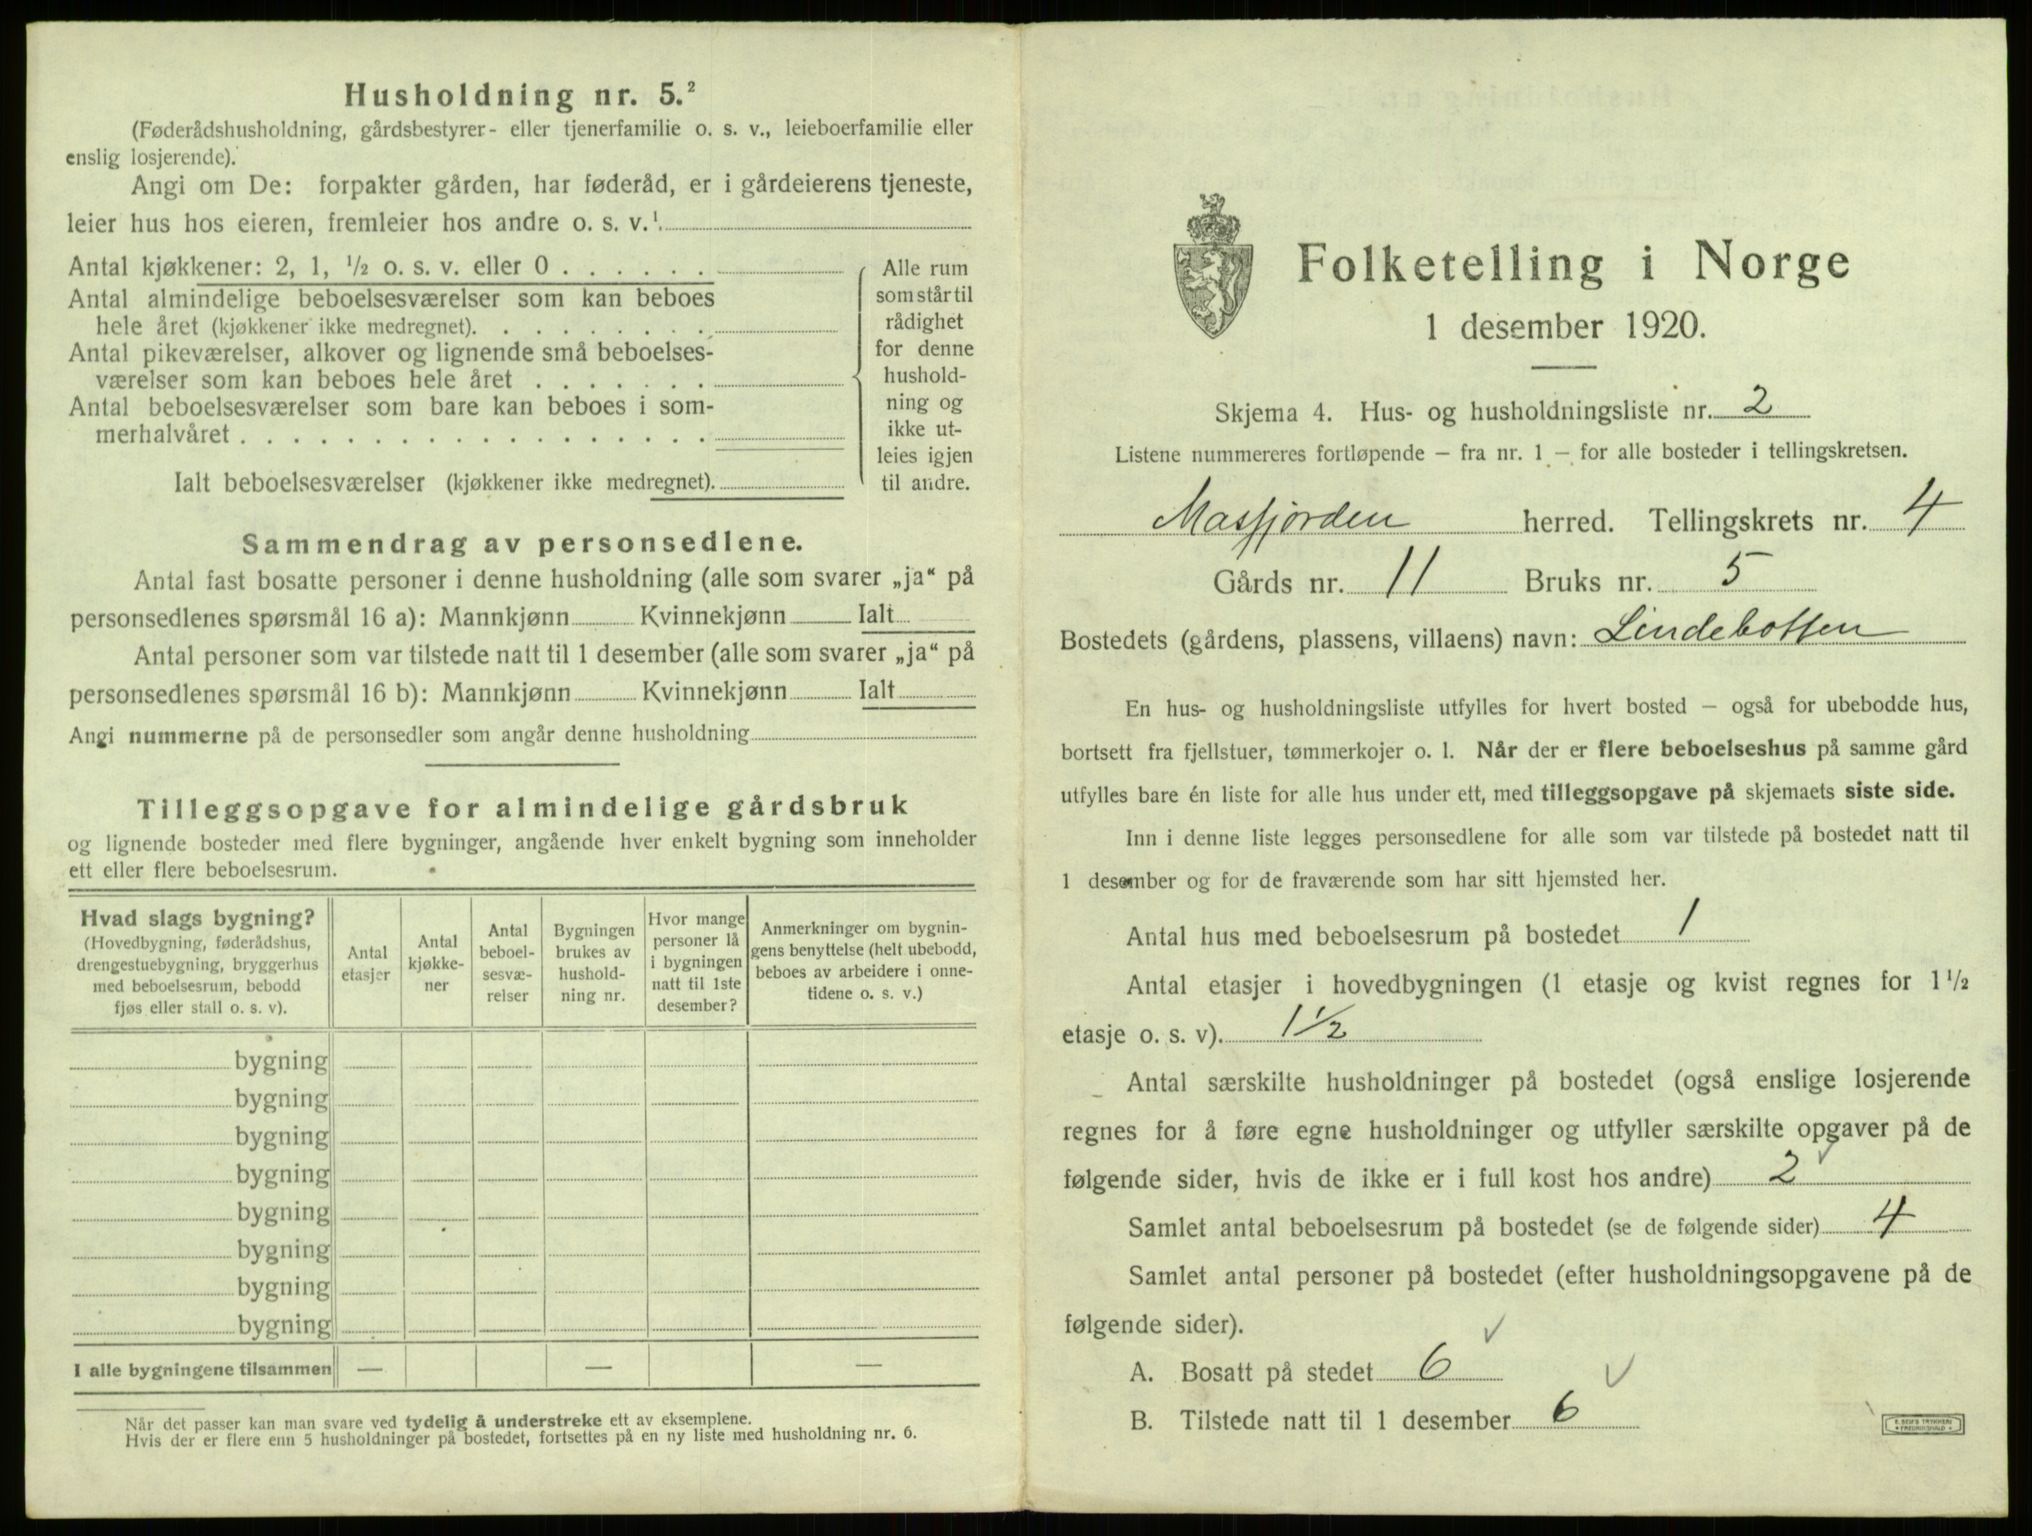 Husholdning nr. 5.²
(Føderådshusholdning, gårdsbestyrer- eller tjenerfamilie o. s. v., leieboerfamilie eller
enslig losjerende).
Angi om De: forpakter gården, har føderåd, er i gårdeierens tjeneste,
leier hus hos eieren, fremleier hos andre o. s. v.¹.
Antal kjøkkener: 2, 1, ½ o. s. v. eller 0 . . . . . .
Antal almindelige beboelsesværelser som kan beboes
hele året (kjøkkener ikke medregnet). . . . . . . . .
Antal pikeværelser, alkover og lignende små beboelses-
værelser som kan beboes hele året . . . . . . .
Antal beboelsesværelser som bare kan beboes i som-
merhalvåret . . . . . . . . . . . . . . . . . .
Ialt beboelsesværelser (kjøkkener ikke medregnet).
Alle rum
som står til
rådighet
for denne
hushold-
ning og
ikke ut-
leies igjen
til andre.
Sammendrag av personsedlene.
Antal fast bosatte personer i denne husholdning (alle som svarer „ja“ på
personsedlenes spørsmål 16 a): Mannkjønn Kvinnekjønn Ialt
Antal personer som var tilstede natt til 1 desember (alle som svarer „ja“ på
personsedlenes spørsmål 16 b): Mannkjønn Kvinnekjønn Ialt
Angi nummerne på de personsedler som angår denne husholdning
Tilleggsopgave for almindelige gårdsbruk
og lignende bosteder med flere bygninger, angående hver enkelt bygning som inneholder
ett eller flere beboelsesrum.
Hvad slags bygning?
(Hovedbygning, føderådshus,
drengestuebygning, bryggerhus
med beboelsesrum, bebodd
fjøs eller stall o. s. v).
Antal
etasjer
Antal
kjøkke-
ner
Antal
beboel-
sesvæ-
relser
Bygningen
brukes av
hushold-
ning nr.
Hvor mange
personer lå
i bygningen
natt til 1ste
desember?
Anmerkninger om bygnin-
gens benyttelse (helt ubebodd,
beboes av arbeidere i onne-
tidene o. s. v.)
bygning
bygning
bygning
bygning
bygning
bygning
bygning
bygning
I alle bygningene tilsammen — — —
Når det passer kan man svare ved tydelig å understreke ett av eksemplene.
Hvis der er flere enn 5 husholdninger på bostedet, fortsettes på en ny liste med husholdning nr. 6.
Folketelling i Norge
1 desember 1920.
Skjema 4. Hus- og husholdningsliste nr. 2
Listene nummereres fortløpende — fra nr. 1 — for alle bosteder i tellingskretsen.
Masfjorden herred. Tellingskrets nr. 4
Gårds nr. 11 Bruks nr. 5
Bostedets (gårdens, plassens, villaens) navn: Lindebotten
En hus- og husholdningsliste utfylles for hvert bosted — også for ubebodde hus,
bortsett fra fjellstuer, tømmerkojer o. l. Når der er flere beboelseshus på samme gård
utfylles bare én liste for alle hus under ett, med tilleggsopgave på skjemaets siste side.
Inn i denne liste legges personsedlene for alle som var tilstede på bostedet natt til
1 desember og for de fraværende som har sitt hjemsted her.
Antal hus med beboelsesrum på bostedet 1
Antal etasjer i hovedbygningen (1 etasje og kvist regnes for 1½
etasje o. s. v). 1½
Antal særskilte husholdninger på bostedet (også enslige losjerende
regnes for å føre egne husholdninger og utfyller særskilte opgaver på de
følgende sider, hvis de ikke er i full kost hos andre) 2
Samlet antal beboelsesrum på bostedet (se de følgende sider) 4
Samlet antal personer på bostedet (efter husholdningsopgavene på de
følgende sider).
A. Bosatt på stedet 6
B. Tilstede natt til 1 desember 6